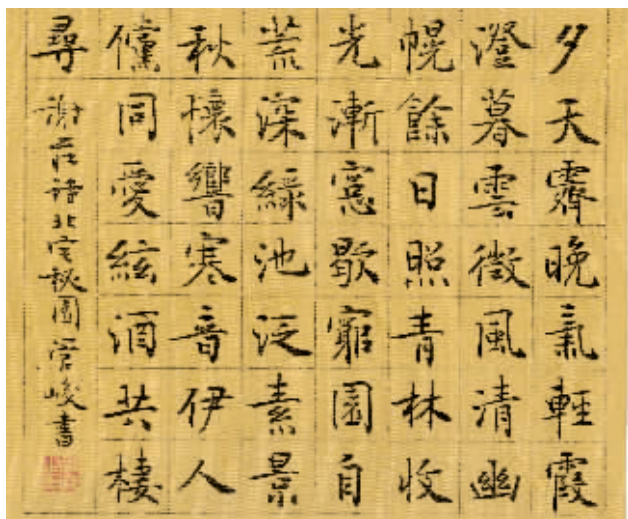 夕天霽晚氣輕霞
澄暮雲微風清幽
幌餘日照青林收
光漸窻歇窮園自
荒深綠池泛素景
秋懷響寒音伊人
儻同愛絃酒共棲
尋
謝莊詩北宅秋園管峻書